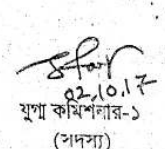 02.10.17
যুগ্ম কমিশনার-১
(সদস্য)